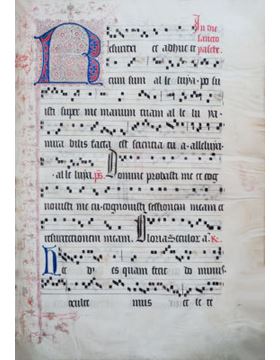 In die
sancto
pasce.
Resurrexi et adhuc te
cum sum al le luya. po su
isti super me manum tuam al le lu ya.
mira bilis facta est sciencia tu a. alleluya.
al le luya. ps. Domine probasti me et cog
novisti me tu cognovisti sessionem meam et
resurrectionem meam. Gloria. seculor a.
Hec dy es quam fecit do minus
exulte mus et le te